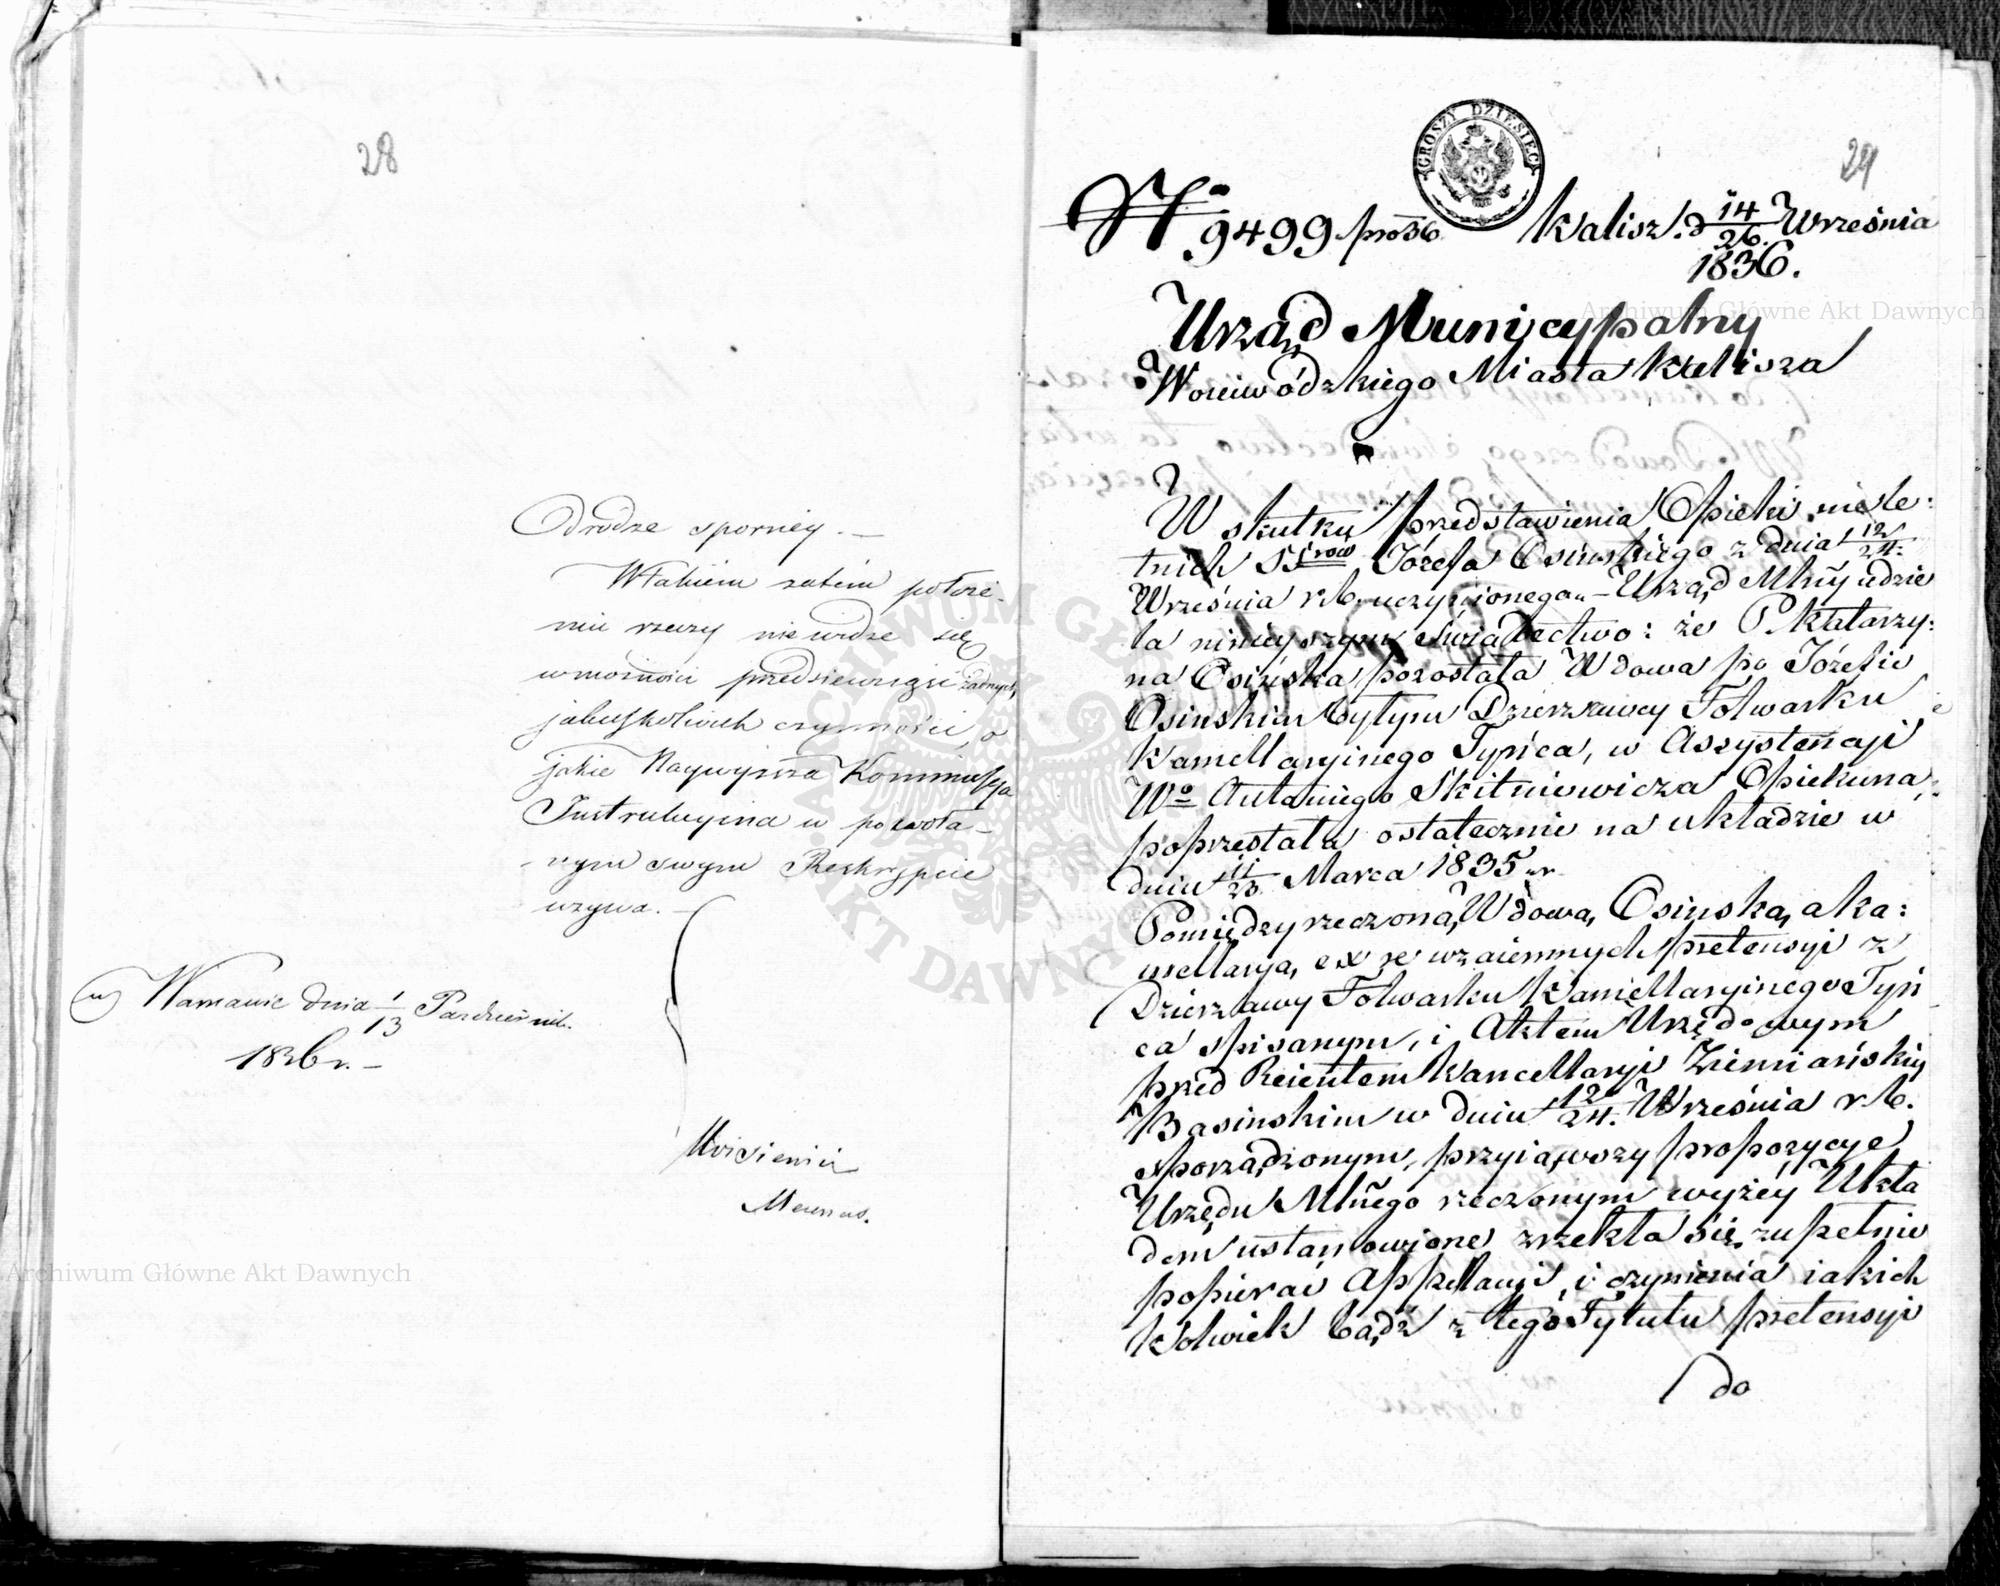 28
Odrodze sporney. —
W takiém zatém położe-
niu rzeczy nie widzę się
w możności przedsiewzięcia żadnych
jakichkolwiek czynności, o
jakie Naywyższa Kommissya
Instrukcyina w powoła-
nym swym Reskrypcie
wzywa. —
w Warszawie dnia 1/13 Pazdziernik.
1836 r. —
Mecenas.
29
GROSZY DZIESIĘĆ
No 9499 pro 36. Kalisz. d 14/26. Września
1836.
Urząd Municypalny
Woiewódzkiego Miasta Kalisza
W skutku przedstawienia Opieki niele:
tnich SSrów Józefa Osinskiego z dnia 12/24.
Września r.b. uczynionego. — Urząd Mlny udzie
la ninieyszym Świadectwo: że P Katarzy:
na Osińska pozostała Wdowa po Józefie
Osinskim bytym Dzierzawcy Folwarku
Kamellaryinego Tyńca, w Assystencyi
Wo Antoniego Skitniewicza Opiekuna,
poprzestała ostatecznie na układzie w
dniu 11/23 Marca 1835 r.
Pomiędzy rzeczoną Wdową Osinską, a ka:
mellaryą, ex re wzaiemnych pretensyi z
Dzierzawy Folwarku Kamellaryinego Tyń
ca spisanym, i Aktem Urzędowym
przed Reientem Kancellaryi Ziemiańskiey
Basinskim w dniu 12/24. Września r.b.
sporządzonym, przyiąwszy propozycye
Urzędu Mlnego rzeczonym wyżéy Ukła
dem ustanowione zrzekła się zupełnie
popierać Appellacyi, i czynienia iakich
kolwiek bądź z tego Tytułu pretensyi
do
Archiwum Główne Akt Dawnych
Archiwum Główne Akt Dawnych
ARCHIWUM GŁÓWNE AKT DAWNYCH